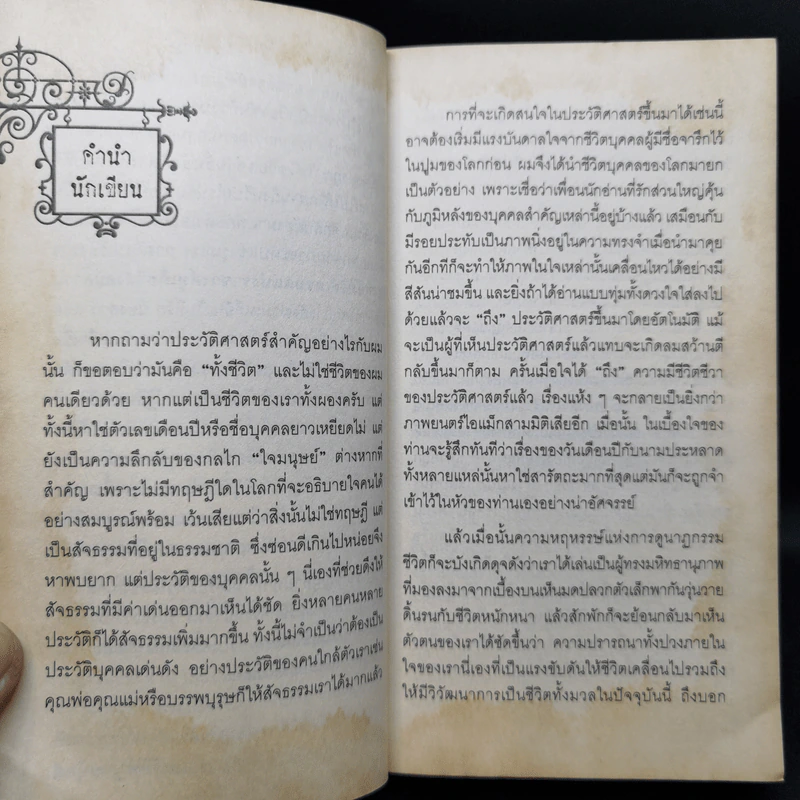 คำนำ
นักเขียน
หากถามว่าประวัติศาสตร์สำคัญอย่างไรกับผม
นั้น ก็ขอตอบว่ามันคือ “ทั้งชีวิต” และไม่ใช่ชีวิตของผม
คนเดียวด้วย หากแต่เป็นชีวิตของเราทั้งผองครับ แต่
ทั้งนี้หาใช่ตัวเลขเดือนปีหรือชื่อบุคคลยาวเหยียดไม่ แต่
ยังเป็นความลึกลับของกลไก “ใจมนุษย์” ต่างหากที่
สำคัญ เพราะไม่มีทฤษฎีใดในโลกที่จะอธิบายใจคนได้
อย่างสมบูรณ์พร้อม เว้นเสียแต่ว่าสิ่งนั้นไม่ใช่ทฤษฎี แต่
เป็นสัจธรรมที่อยู่ในธรรมชาติ ซึ่งซ่อนดีเกินไปหน่อยจึง
หาพบยาก แต่ประวัติของบุคคลนั้น ๆ นี่เองที่ช่วยดึงให้
สัจธรรมที่มีค่าเด่นออกมาเห็นได้ชัด ยิ่งหลายคนหลาย
ประวัติก็ได้สัจธรรมเพิ่มมากขึ้น ทั้งนี้ไม่จำเป็นว่าต้องเป็น
ประวัติบุคคลเด่นดัง อย่างประวัติของคนใกล้ตัวเราเช่น
คุณพ่อคุณแม่หรือบรรพบุรุษก็ให้สัจธรรมเราได้มากแล้ว
การที่จะเกิดสนใจในประวัติศาสตร์ขึ้นมาได้เช่นนี้
อาจต้องเริ่มมีแรงบันดาลใจจากชีวิตบุคคลผู้มีชื่อจารึกไว้
ในปูมของโลกก่อน ผมจึงได้นำชีวิตบุคคลของโลกมายก
เป็นตัวอย่าง เพราะเชื่อว่าเพื่อนนักอ่านที่รักส่วนใหญ่คุ้น
กับภูมิหลังของบุคคลสำคัญเหล่านี้อยู่บ้างแล้ว เสมือนกับ
มีรอยประทับเป็นภาพนิ่งอยู่ในความทรงจำเมื่อนำมาคุย
กันอีกทีก็จะทำให้ภาพในใจเหล่านั้นเคลื่อนไหวได้อย่างมี
สีสันน่าชมขึ้น และยิ่งถ้าได้อ่านแบบทุ่มทั้งดวงใจใส่ลงไป
ด้วยแล้วจะ “ถึง” ประวัติศาสตร์ขึ้นมาโดยอัตโนมัติ แม้
จะเป็นผู้ที่เห็นประวัติศาสตร์แล้วแทบจะเกิดลมสว้านตี
กลับขึ้นมาก็ตาม ครั้นเมื่อใจได้ “ถึง” ความมีชีวิตชีวา
ของประวัติศาสตร์แล้ว เรื่องแห้ง ๆ จะกลายเป็นยิ่งกว่า
ภาพยนตร์ไอแม็กสามมิติเสียอีก เมื่อนั้น ในเบื้องใจของ
ท่านจะรู้สึกทันทีว่าเรื่องของวันเดือนปีกับนามประหลาด
ทั้งหลายแหล่นั้นหาใช่สารัตถะมากที่สุดแต่มันก็จะถูกจำ
เข้าไว้ในหัวของท่านเองอย่างน่าอัศจรรย์
แล้วเมื่อนั้นความหฤหรรษ์แห่งการดูนาฏกรรม
ชีวิตก็จะบังเกิดดุจดังว่าเราได้เล่นเป็นผู้ทรงมหิทธานุภาพ
ที่มองลงมาจากเบื้องบนเห็นมดปลวกตัวเล็กพากันวุ่นวาย
ดิ้นรนกับชีวิตหนักหนา แล้วสักพักก็จะย้อนกลับมาเห็น
ตัวตนของเราได้ชัดขึ้นว่า ความปรารถนาทั้งปวงภายใน
ใจของเรานี่เองที่เป็นแรงขับดันให้ชีวิตเคลื่อนไปรวมถึง
ให้มีวิวัฒนาการเป็นชีวิตทั้งมวลในปัจจุบันนี้ ถึงบอก